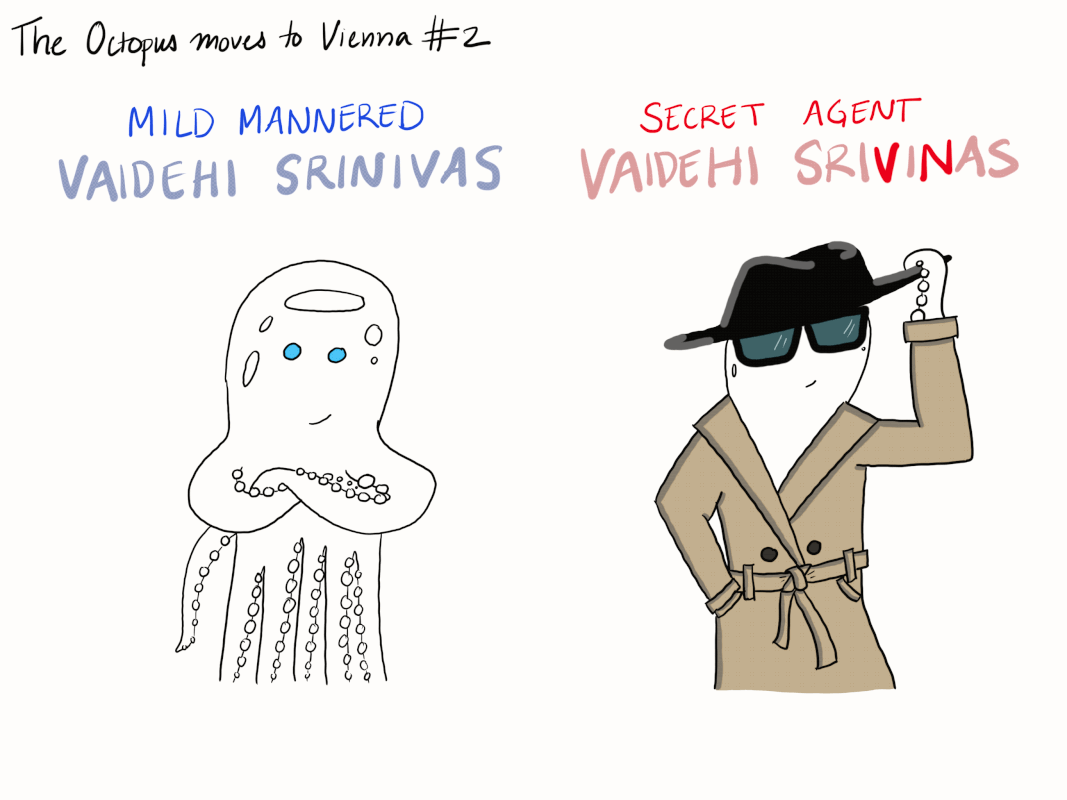 The Octopus moves to Vienna #2
MILD MANNERED
VAIDEHI SRINIVAS
SECRET AGENT
VAIDEHI SRIVINAS